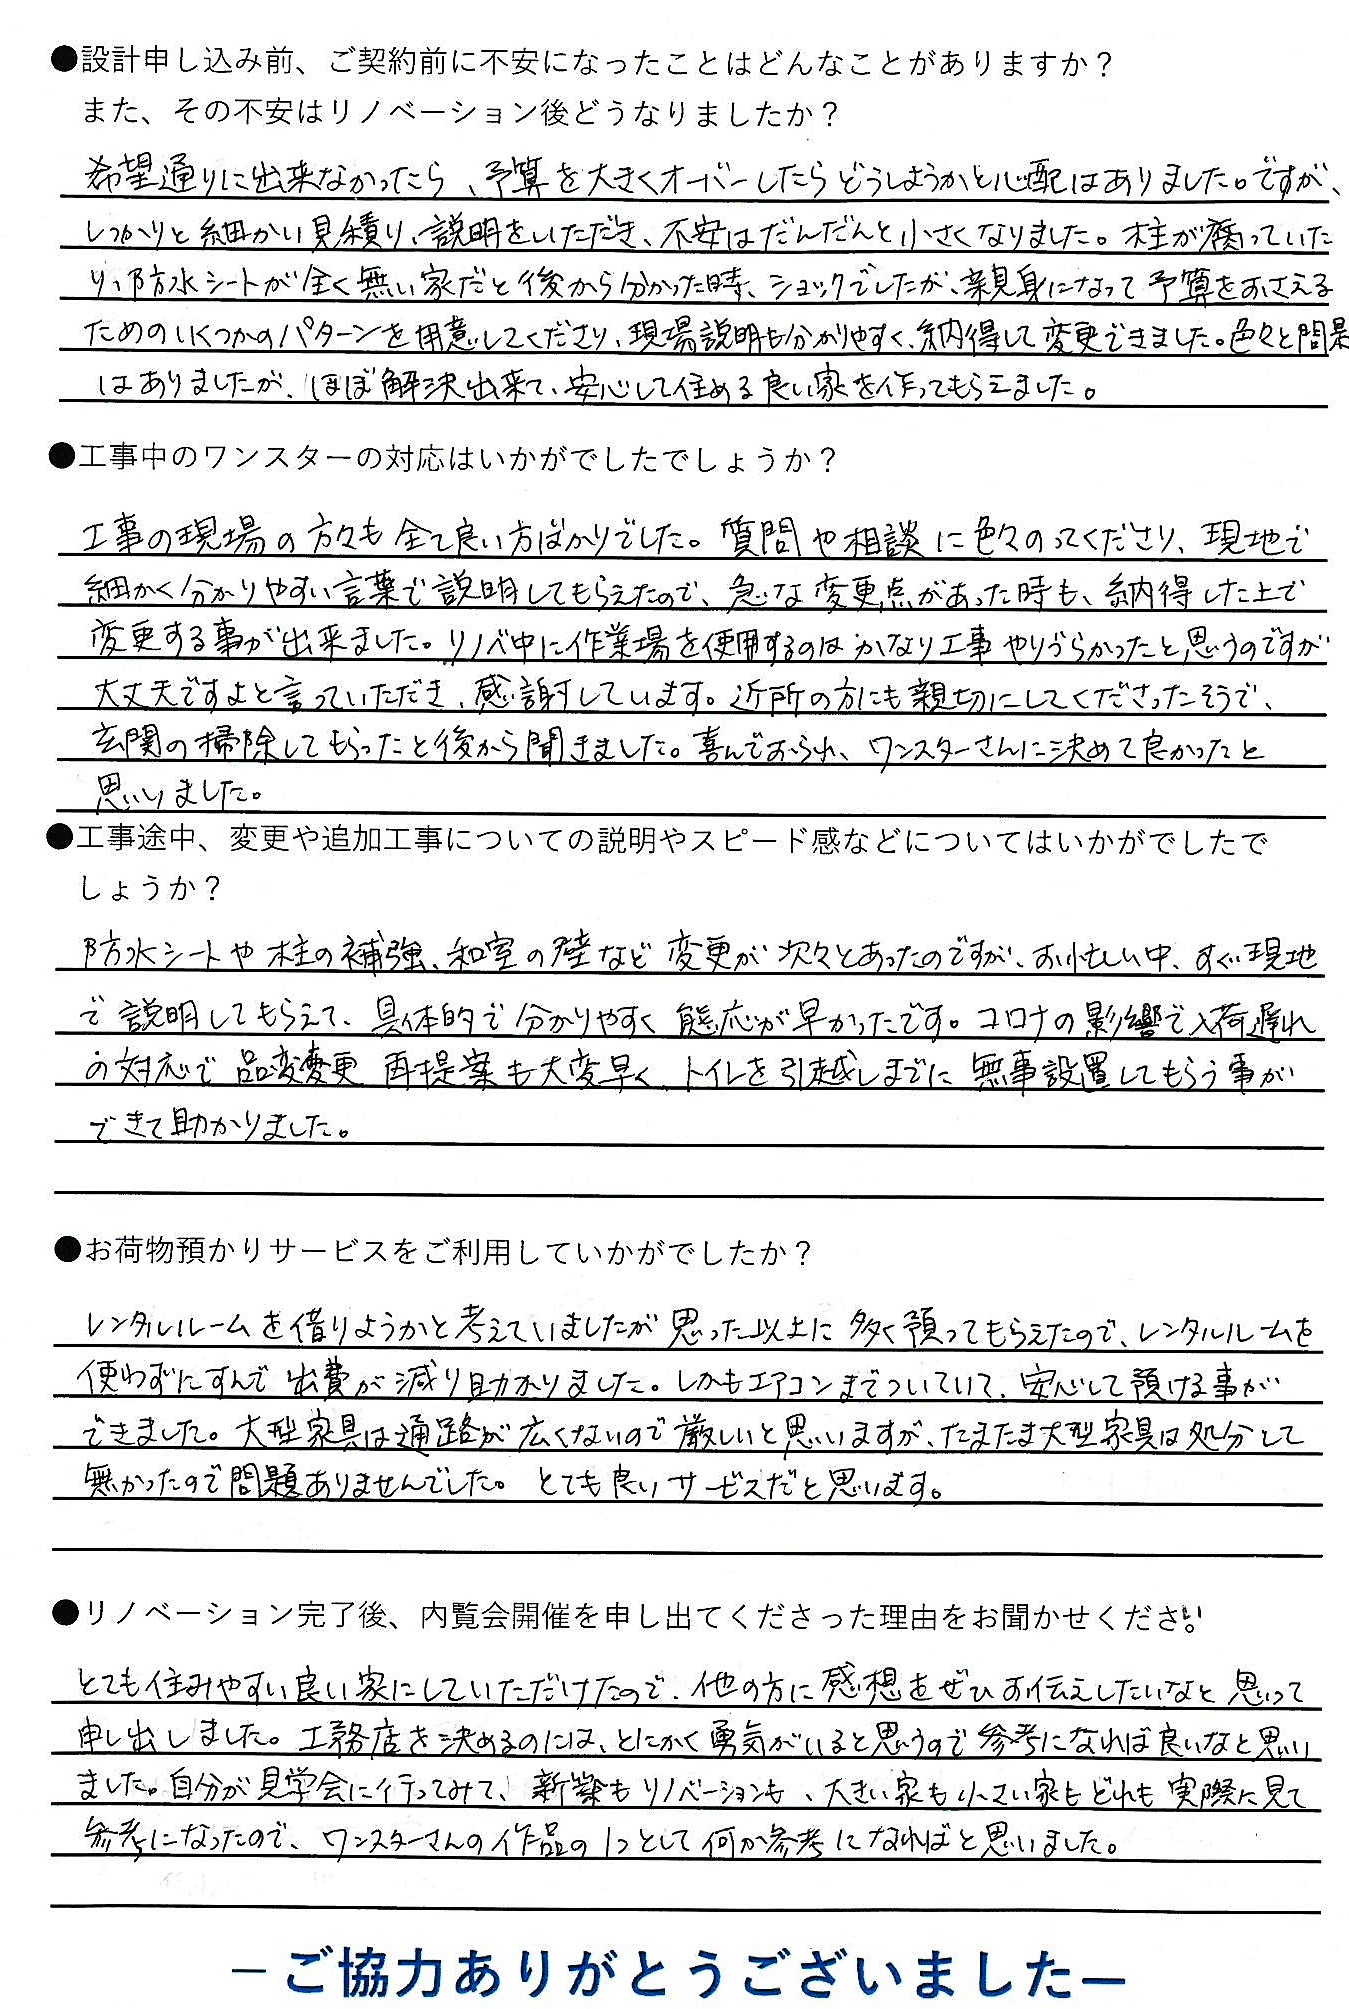 ●設計申し込み前、ご契約前に不安になったことはどんなことがありますか？
また、その不安はリノベーション後どうなりましたか？
希望通りに出来なかったら、予算を大きくオーバーしたらどうしようかと心配はありました。ですが、
しっかりと細かい見積り、説明をいただき、不安はだんだんと小さくなりました。柱が腐っていた
り、防水シートが全く無い家だと後から分かった時、ショックでしたが、親身になって予算をおさえる
ためのいくつかのパターンを用意してくださり、現場説明も分かりやすく、納得して変更できました。色々と問題
はありましたが、ほぼ解決出来て、安心して住める良い家を作ってもらえました。
●工事中のワンスターの対応はいかがでしたでしょうか？
工事の現場の方々も全て良い方ばかりでした。質問や相談に色々のってくださり、現地で
細かく分かりやすい言葉で説明してもらえたので、急な変更点があった時も、納得した上で
変更する事が出来ました。リノベ中に作業場を使用するのはかなり工事やりづらかったと思うのですが
大丈夫ですよと言っていただき、感謝しています。近所の方にも親切にしてくださったそうで、
玄関の掃除してもらったと後から聞きました。喜んでおられ、ワンスターさんに決めて良かったと
思いました。
●工事途中、変更や追加工事についての説明やスピード感などについてはいかがでしたで
しょうか？
防水シートや柱の補強、和室の壁など変更が次々とあったのですが、お忙しい中、すぐ現地
で説明してもらえて、具体的で分かりやすく態応が早かったです。コロナの影響で入荷遅れ
の対応で品変変更 再提案も大変早く、トイレを引越しまでに無事設置してもらう事が
できて助かりました。
●お荷物預かりサービスをご利用していかがでしたか？
レンタルルームを借りようかと考えていましたが思った以上に多く預ってもらえたので、レンタルルームを
使わずにすんで出費が減り助かりました。しかもエアコンまでついていて、安心して預ける事が
できました。大型家具は通路が広くないので厳しいと思いますが、たまたま大型家具は処分して
無かったので問題ありませんでした。とても良いサービスだと思います。
●リノベーション完了後、内覧会開催を申し出てくださった理由をお聞かせください。
とても住みやすい良い家にしていただけたので、他の方に感想をぜひお伝えしたいなと思って
申し出しました。工務店を決めるのには、とにかく勇気がいると思うので参考になれば良いなと思い
ました。自分が見学会に行ってみて、新築もリノベーションも、大きい家も小さい家もどれも実際に見て
参考になったので、ワンスターさんの作品の1つとして何か参考になればと思いました。
－ご協力ありがとうございました－